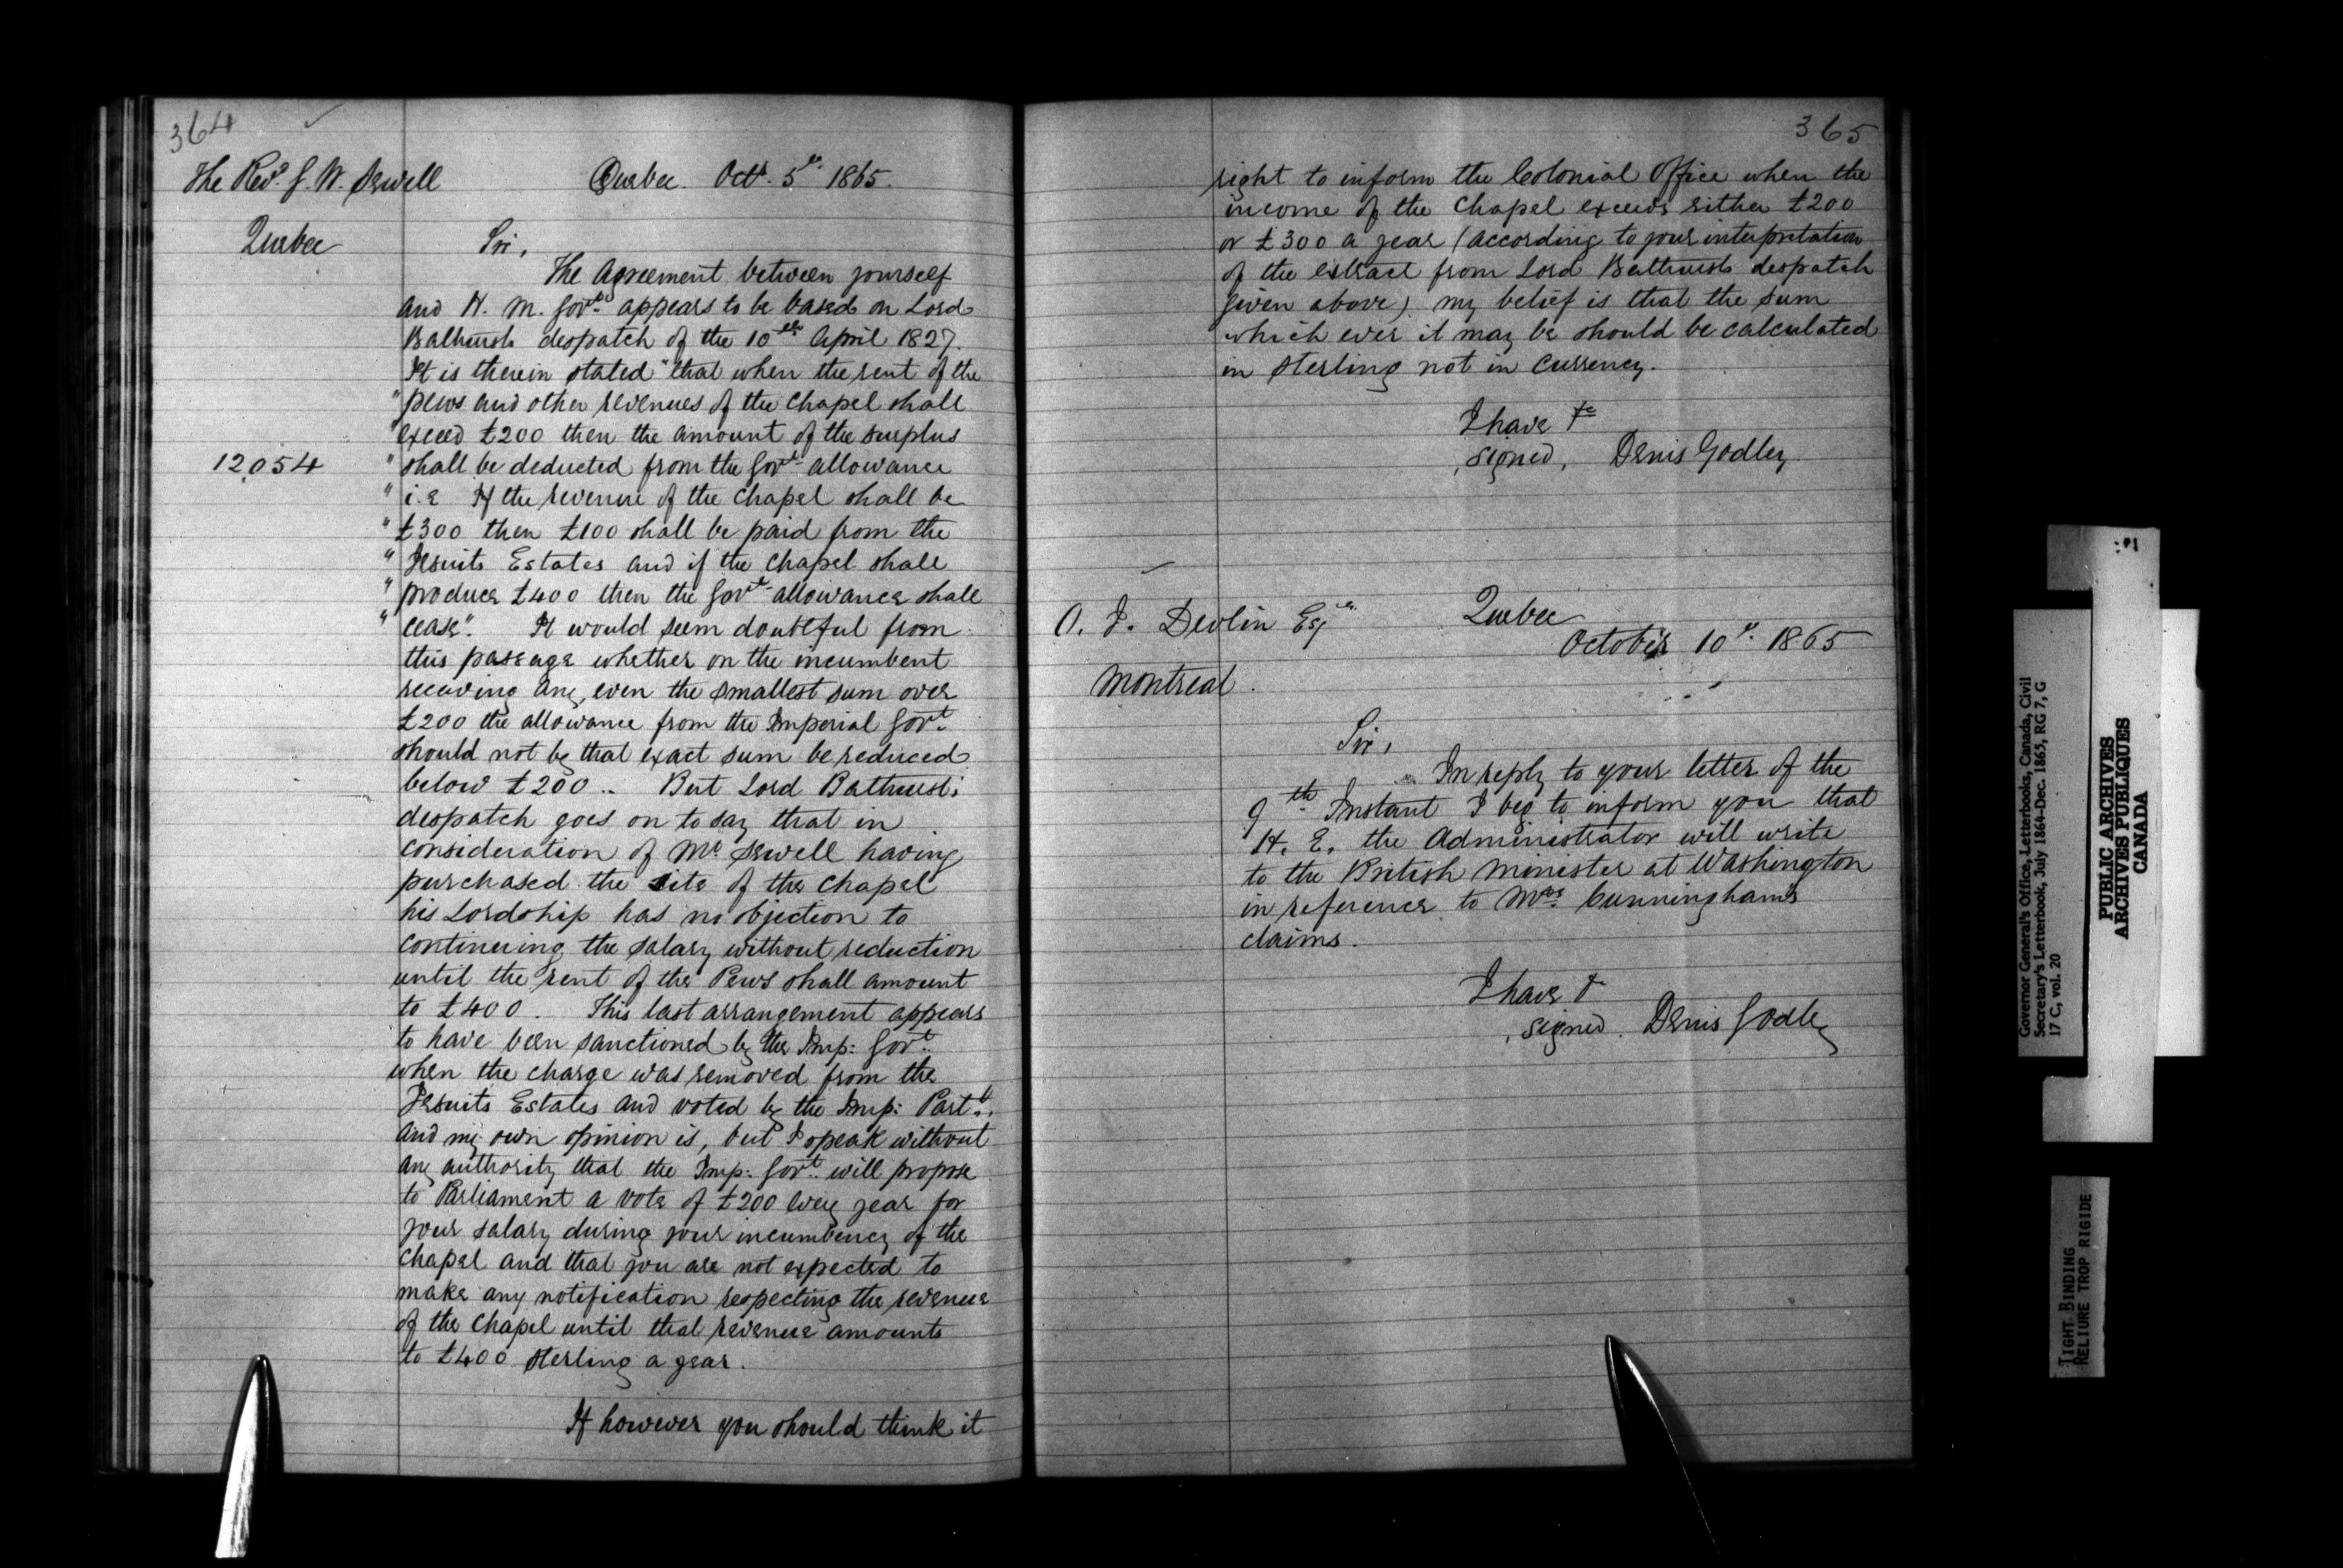 364
The Revd. J. W. Sewell
Quebec. Octr. 5th 1865.
Quebec
Sir,
The Agreement between yourself
and H. M. Govt. appears to be based on Lord
Bathursts despatch of the 10th April 1827.
It is therein stated "that when the rent of the
"pews and other revenues of the chapel shall
"exceed £200 then the amount of the surplus
12054
"shall be deducted from the Govt. allowance
"i.e If the revenue of the chapel shall be
"£300 then £100 shall be paid from the
"Jesuits Estates and if the chapel shall
"produce £400 then the Govt. allowance shall
"cease". It would seem doubtful from
this passage whether on the incumbent
receiving any, even the smallest sum over
£200 the allowance from the Imperial Govt.
should not by that exact sum be reduced
below £200.. But Lord Bathursts
despatch goes on to say that in
consideration of Mr. Sewell having
purchased the site of the chapel
his Lordship has no objection to
continuing the salary without reduction
until the rent of the Pews shall amount
to £400. This last arrangement appears
to have been sanctioned by the Imp: Govt.
when the charge was removed from the
Jesuits Estates and voted by the Imp: Part.
and my own opinion is, but I speak without
any authority that the Imp: Govt. will propose
to Parliament a vote of £200 every year for
your salary during your incumbency of the
chapel and that you are not expected to
make any notification respecting the revenue
of the chapel until that revenue amounts
to £400 sterling a year.
If however you should think it
365
right to inform the Colonial Office when the
income of the chapel exceeds either £200
or £300 a year (according to your interpretation
of the extract from Lord Bathursts despatch
given above) my belief is that the sum
which ever it may be should be calculated
in sterling not in currency.
I have &c
signed, Denis Godley.
O. J. Devlin Esqre
Quebec
October 10th. 1865
Montreal.
Sir,
In reply to your letter of the
9th Instant I beg to inform you that
H. E. the Administrator will write
to the British Minister at Washington
in reference to Mrs. Cunningham's
claims.
I have &
signed. Denis Godley
Governor General's Office, Letterbooks, Canada, Civil
Secretary's Letterbook, July 1864-Dec. 1865, RG 7, G
17 C, vol. 20
PUBLIC ARCHIVES
ARCHIVES PUBLIQUES
CANADA
TIGHT BINDING
RELIURE TROP RIGIDE